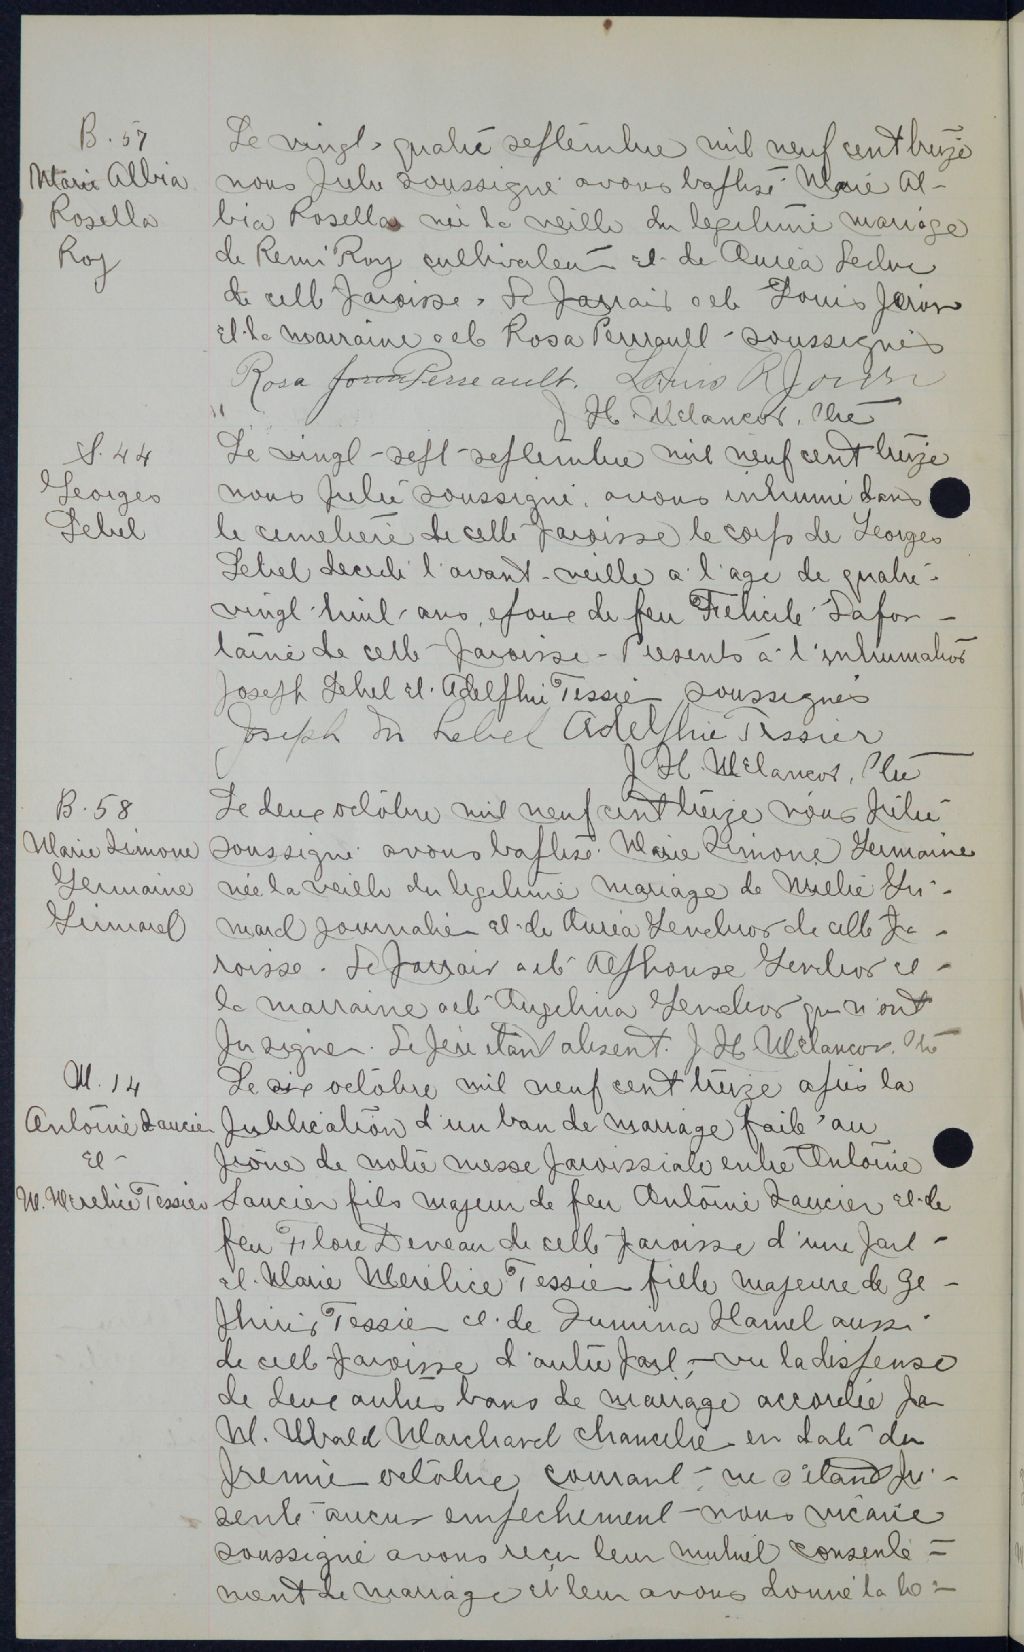 B. 57
Marie Albia
Rosella
Roy
Le vingt-quatre septembre mil neuf cent treize
nous prêtre soussigné avons baptisé Marie Al-
bia Rosella née la veille du légitime mariage
de Remi Roy cultivateur et de Auréa Leduc
de cette paroisse. Le parrain a été Louis
et la marraine a été Rosa Perreault soussignés
Rosa Perreault. Louis R
J H. Melançon, Ptre
S. 44
Georges
Lebel
Le vingt-sept septembre mil neuf cent treize
nous prêtre soussigné, avons inhumé dans
le cimetière de cette paroisse le corps de Georges
Lebel décédé l'avant-veille à l'âge de quatre-
vingt-huit-ans, époux de feu Félicité Lafon-
taine de cette paroisse - Présents à l'inhumation
Joseph Lebel et Adelphie Tessier soussignés
Joseph M Lebel Adelphie Tessier
J H. Melançon, Ptre
B. 58
Marie Simone
Germaine
Grimard
Le deux octobre mil neuf cent treize nous prêtre
soussigné avons baptisé Marie Simone Germaine
née la veille du légitime mariage de Gri-
mard journalier et de Auréa Gendron de cette pa-
roisse. Le parrain a été Alphonse Gendron et
la marraine a été Angelina Gendron qui n'ont
pu signer. Le père étant absent. J H Melançon. Ptre
M. 14
Antoine Saucier
et
M. Mérélice Tessier
Le six octobre mil neuf cent treize après la
publication d'un ban de mariage faite au
prône de notre messe paroissiale entre Antoine
Saucier fils majeur de feu Antoine Saucier et de
feu Flore Deveau de cette paroisse d'une part
et Marie Mérélice Tessier fille majeure de Ze-
phirin Tessier et de Zumina Hamel aussi
de cette paroisse d'autre part, vu la dispense
de deux autres bans de mariage accordée par
M. Ubald Marchand chancelier en date du
premier octobre courant, ne s'étant pré-
senté aucun empêchement nous vicaire
soussigné avons reçu leur mutuel consente=
ment de mariage et leur avons donné la bé=